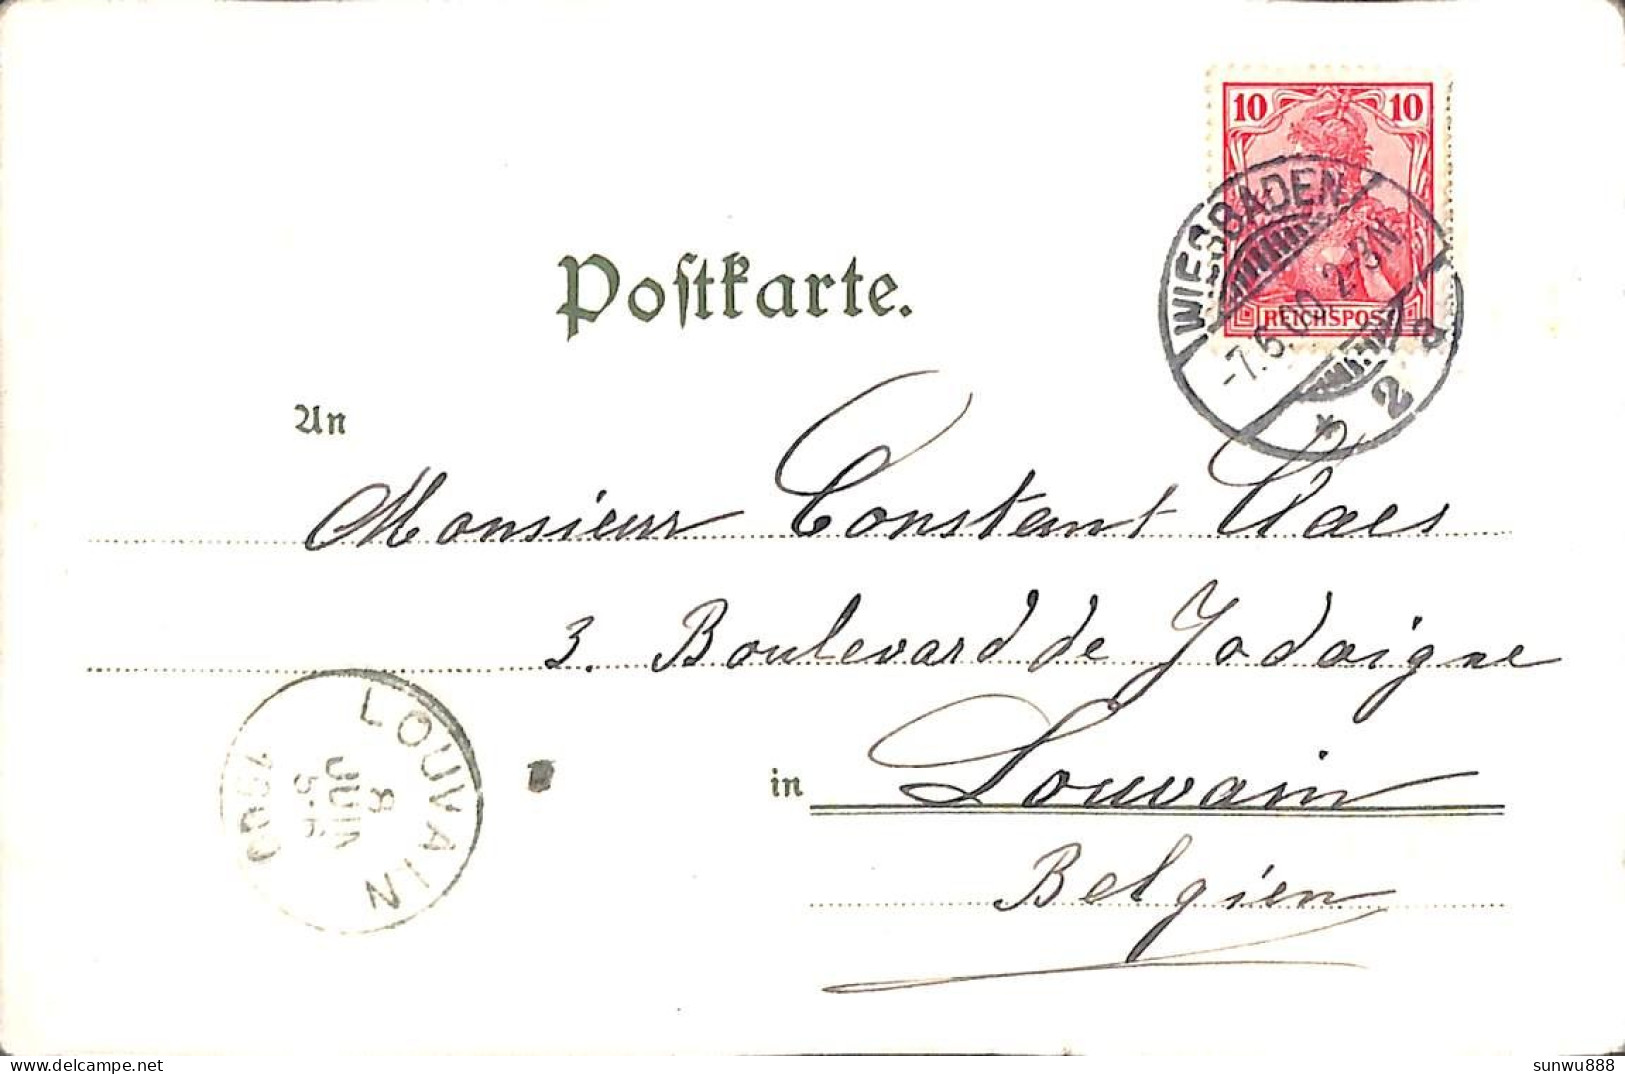 10 10
REICHSPOST
WIESBADEN
-7.6.00. 2-3N.
* 2 a
Postkarte.
An
Monsieur Constant Claes
3. Boulevard de Jodoigne
in Louvain
Belgien
LOUVAIN
8
JUIN
1900
delcampe.net
sunwu888